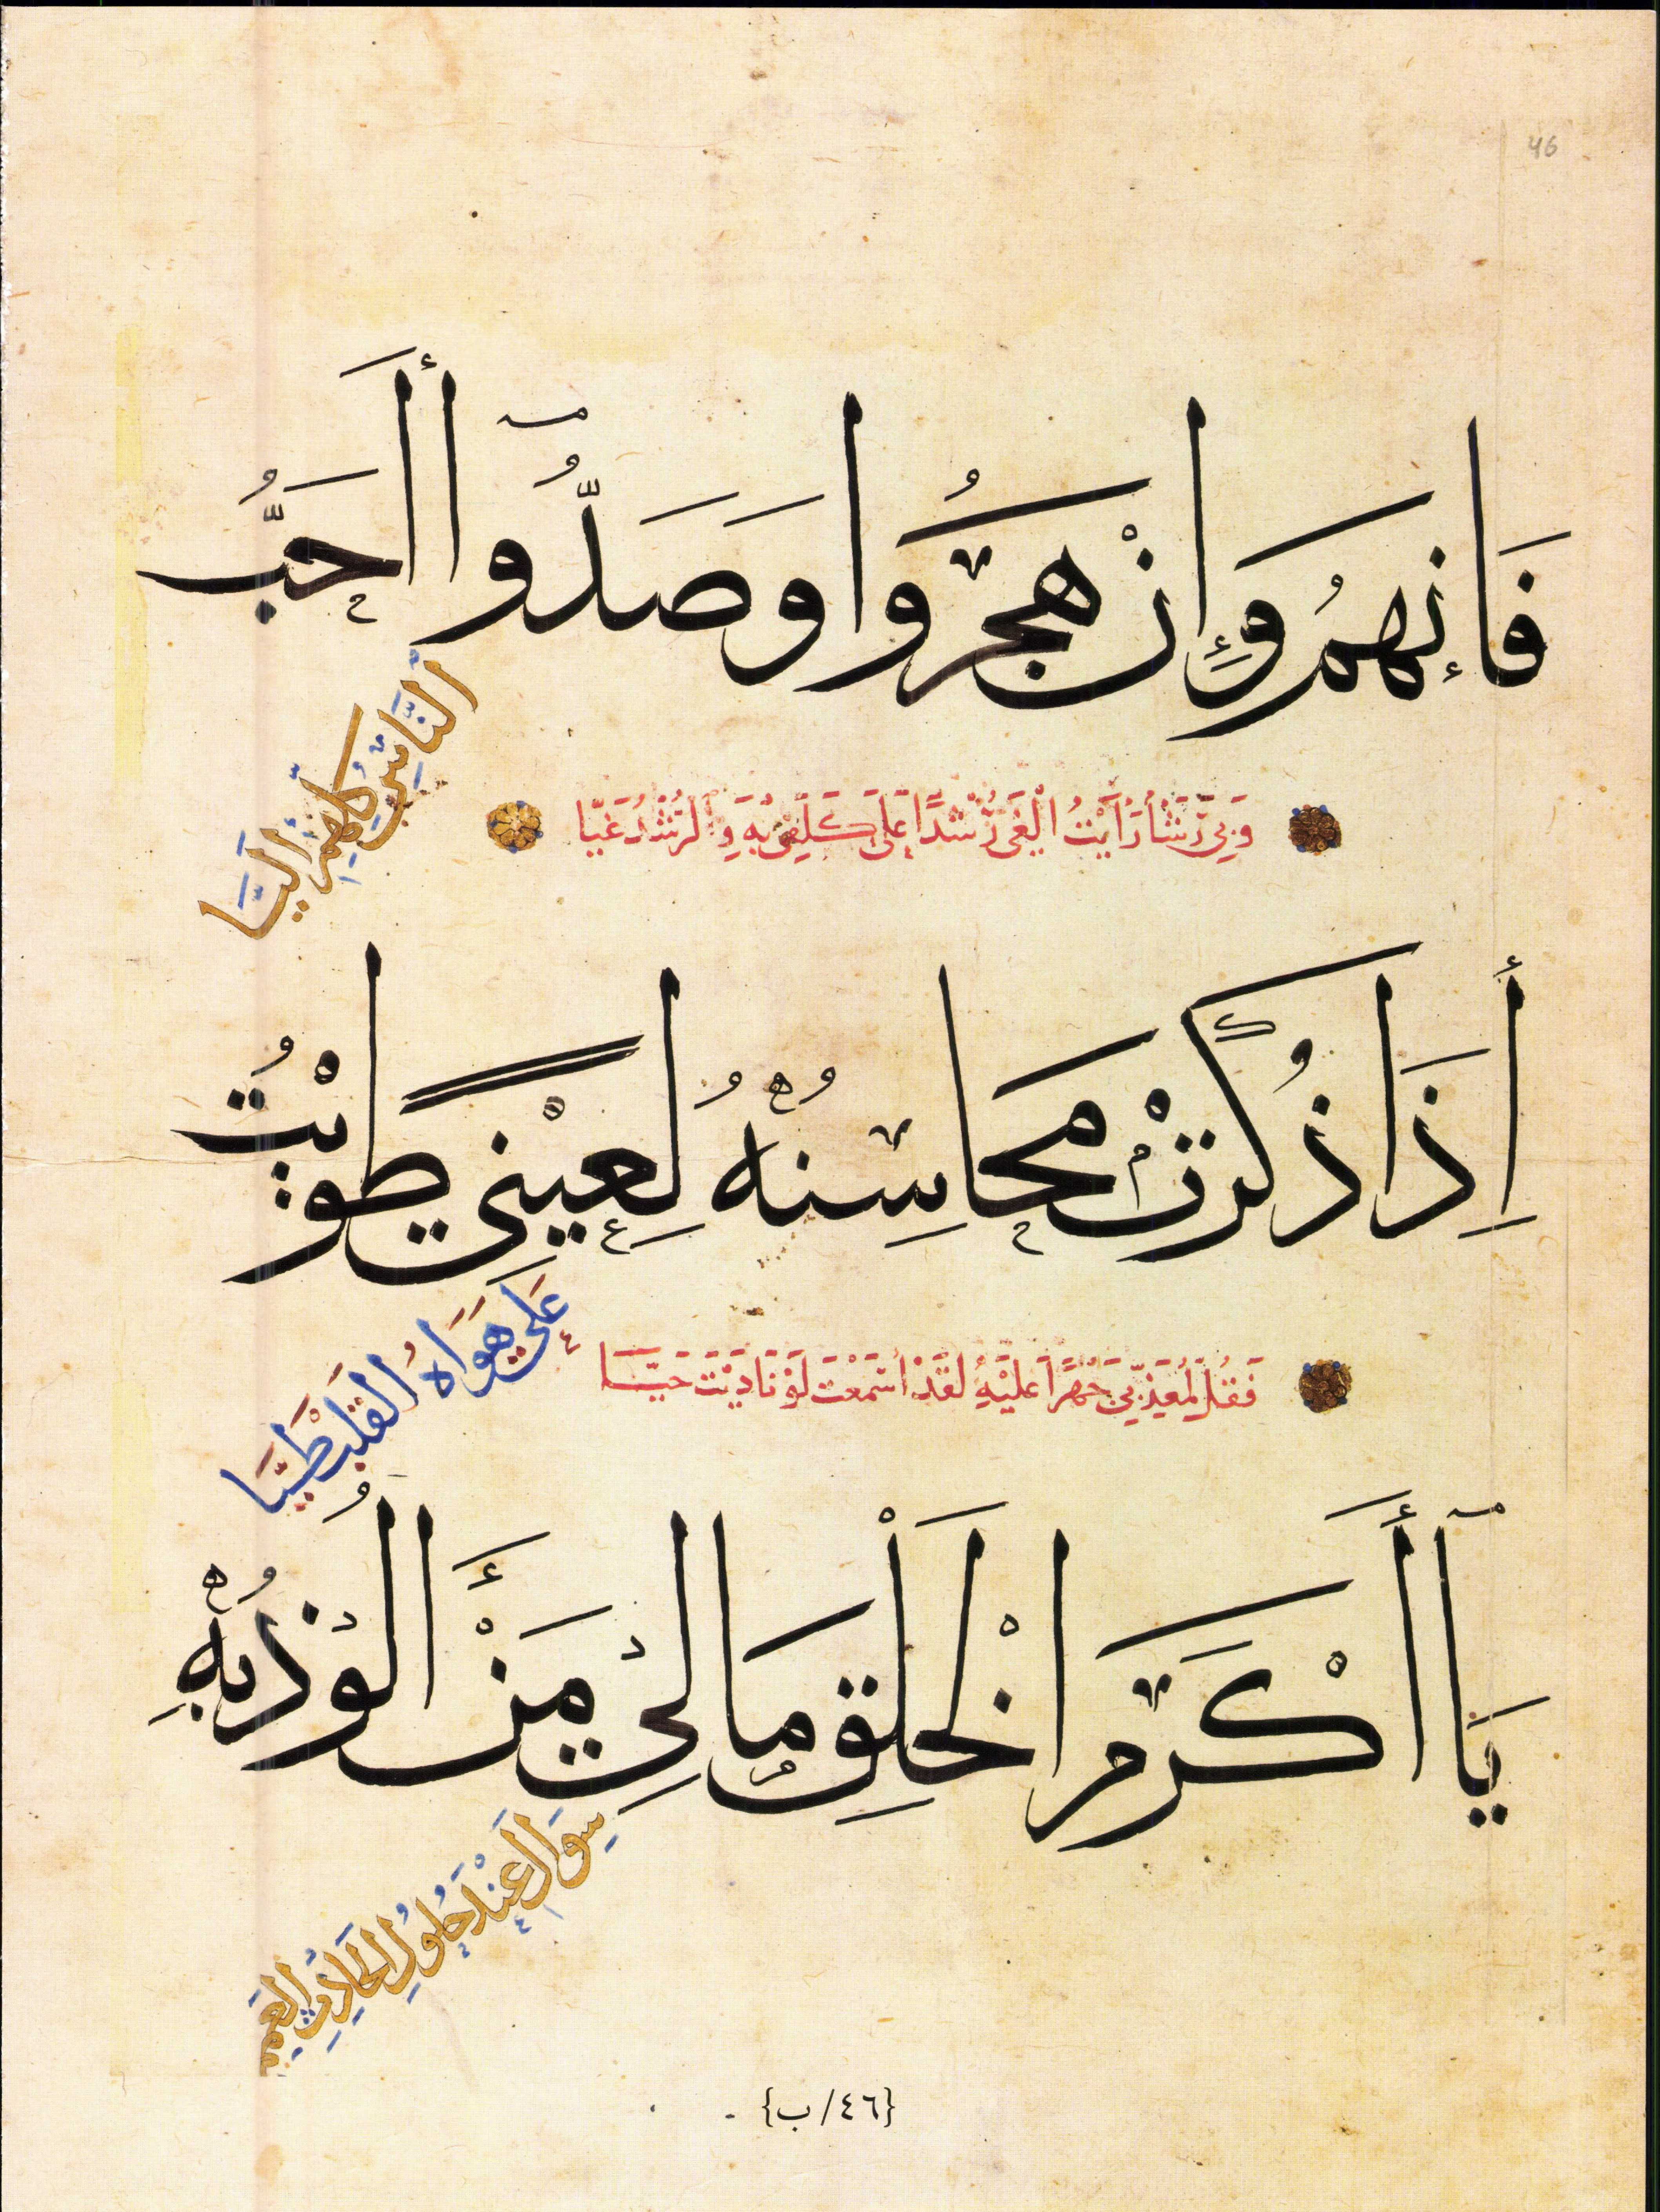 46
فَإِنهمُ وَإِنْ هجَرُوا وَصَدُّوا أَحَبُّ
النَّاسِ كُلِّهِمِ إِلَيَّا
وَبِي رَشَأٌ رَأَيْتُ الْغَىَّ رُشْدًا عَلَى كَلَفِى بِهِ وَالرُّشْدَ غَيَّا
إِذَا ذُكِرَتْ مَحَاسِنُهُ لِعَيْنِي طَوَيْتُ
عَلَى هَوَاهُ الْقَلْبَ طَيَّا
فَقُلْ لِمُعَنِّفِي جَهْرًا عَلَيْهِ لَقَدْ أَسْمَعْتَ لَوْ نَادَيْتَ حَيَّا
يَا أَكْرَمَ الْخَلْقِ مَا لِي مَنْ أَلُوذُ بِهِ
سِوَاكَ عِنْدَ حُلُولِ الْحَادِثِ الْعَمِمِ
{٤٦/ب}